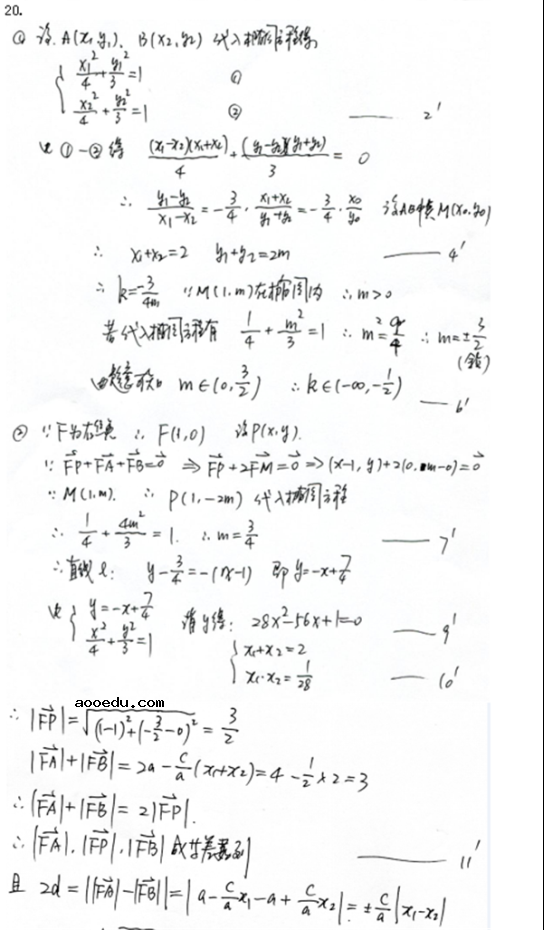 20.
① 设 A(x₁, y₁), B(x₂, y₂) 代入椭圆方程得
{ x₁²/4 + y₁²/3 = 1 ①
x₂²/4 + y₂²/3 = 1 ② —— 2'
由 ①-② 得 (x₁-x₂)(x₁+x₂)/4 + (y₁-y₂)(y₁+y₂)/3 = 0
∴ (y₁-y₂)/(x₁-x₂) = -3/4 · (x₁+x₂)/(y₁+y₂) = -3/4 · x₀/y₀ 设AB中点M(x₀, y₀)
∴ x₁+x₂=2 y₁+y₂=2m —— 4'
∴ k=-3/4m ∵ M(1, m)在椭圆内 ∴ m>0
若代入椭圆方程有 1/4 + m²/3 = 1 ∴ m²=9/4 ∴ m=±3/2
(舍)
由题意可知 m∈(0, 3/2) ∴ k∈(-∞, -1/2) —— 6'
② ∵ F为右焦点 ∴ F(1,0) 设P(x, y).
∵ FP+FA+FB=0 ⇒ FP+2FM=0 ⇒ (x-1, y)+2(0, m-0)=0
∵ M(1, m). ∴ P(1, -2m) 代入椭圆方程
∴ 1/4 + 4m²/3 = 1. ∴ m=3/4 —— 7'
∴ 直线 l: y-3/4=-(x-1) 即 y=-x+7/4
由 { y=-x+7/4
x²/4+y²/3=1 消y得: 28x²-56x+1=0 —— 9'
{ x₁+x₂=2
x₁·x₂=1/28 —— 10'
aooedu.com
∴ |FP|=√((1-1)²+(-3/2-0)²) = 3/2
|FA|+|FB| = 2a - c/a(x₁+x₂)=4 - 1/2×2=3
∴ |FA|+|FB| = 2|FP|.
∴ |FA|, |FP|, |FB| 成等差数列 —— 11'
且 2d = ||FA|-|FB|| = |a - c/a x₁ - a + c/a x₂| = ± c/a |x₁-x₂|